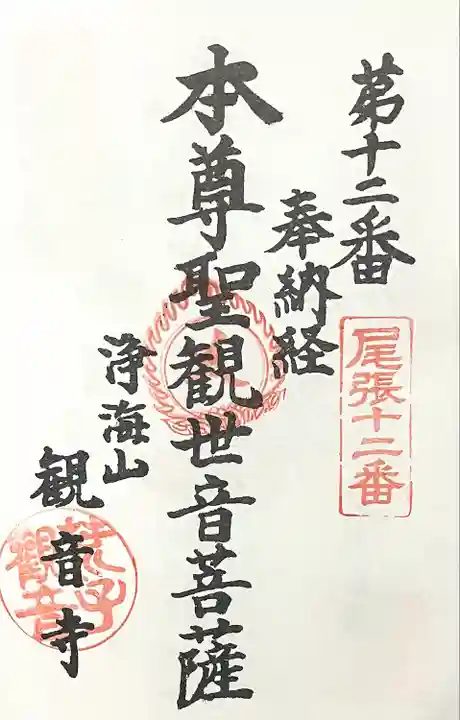 第十二番
奉納経
尾張十二番
本尊聖観世音菩薩
浄海山
観音寺
荒子観音